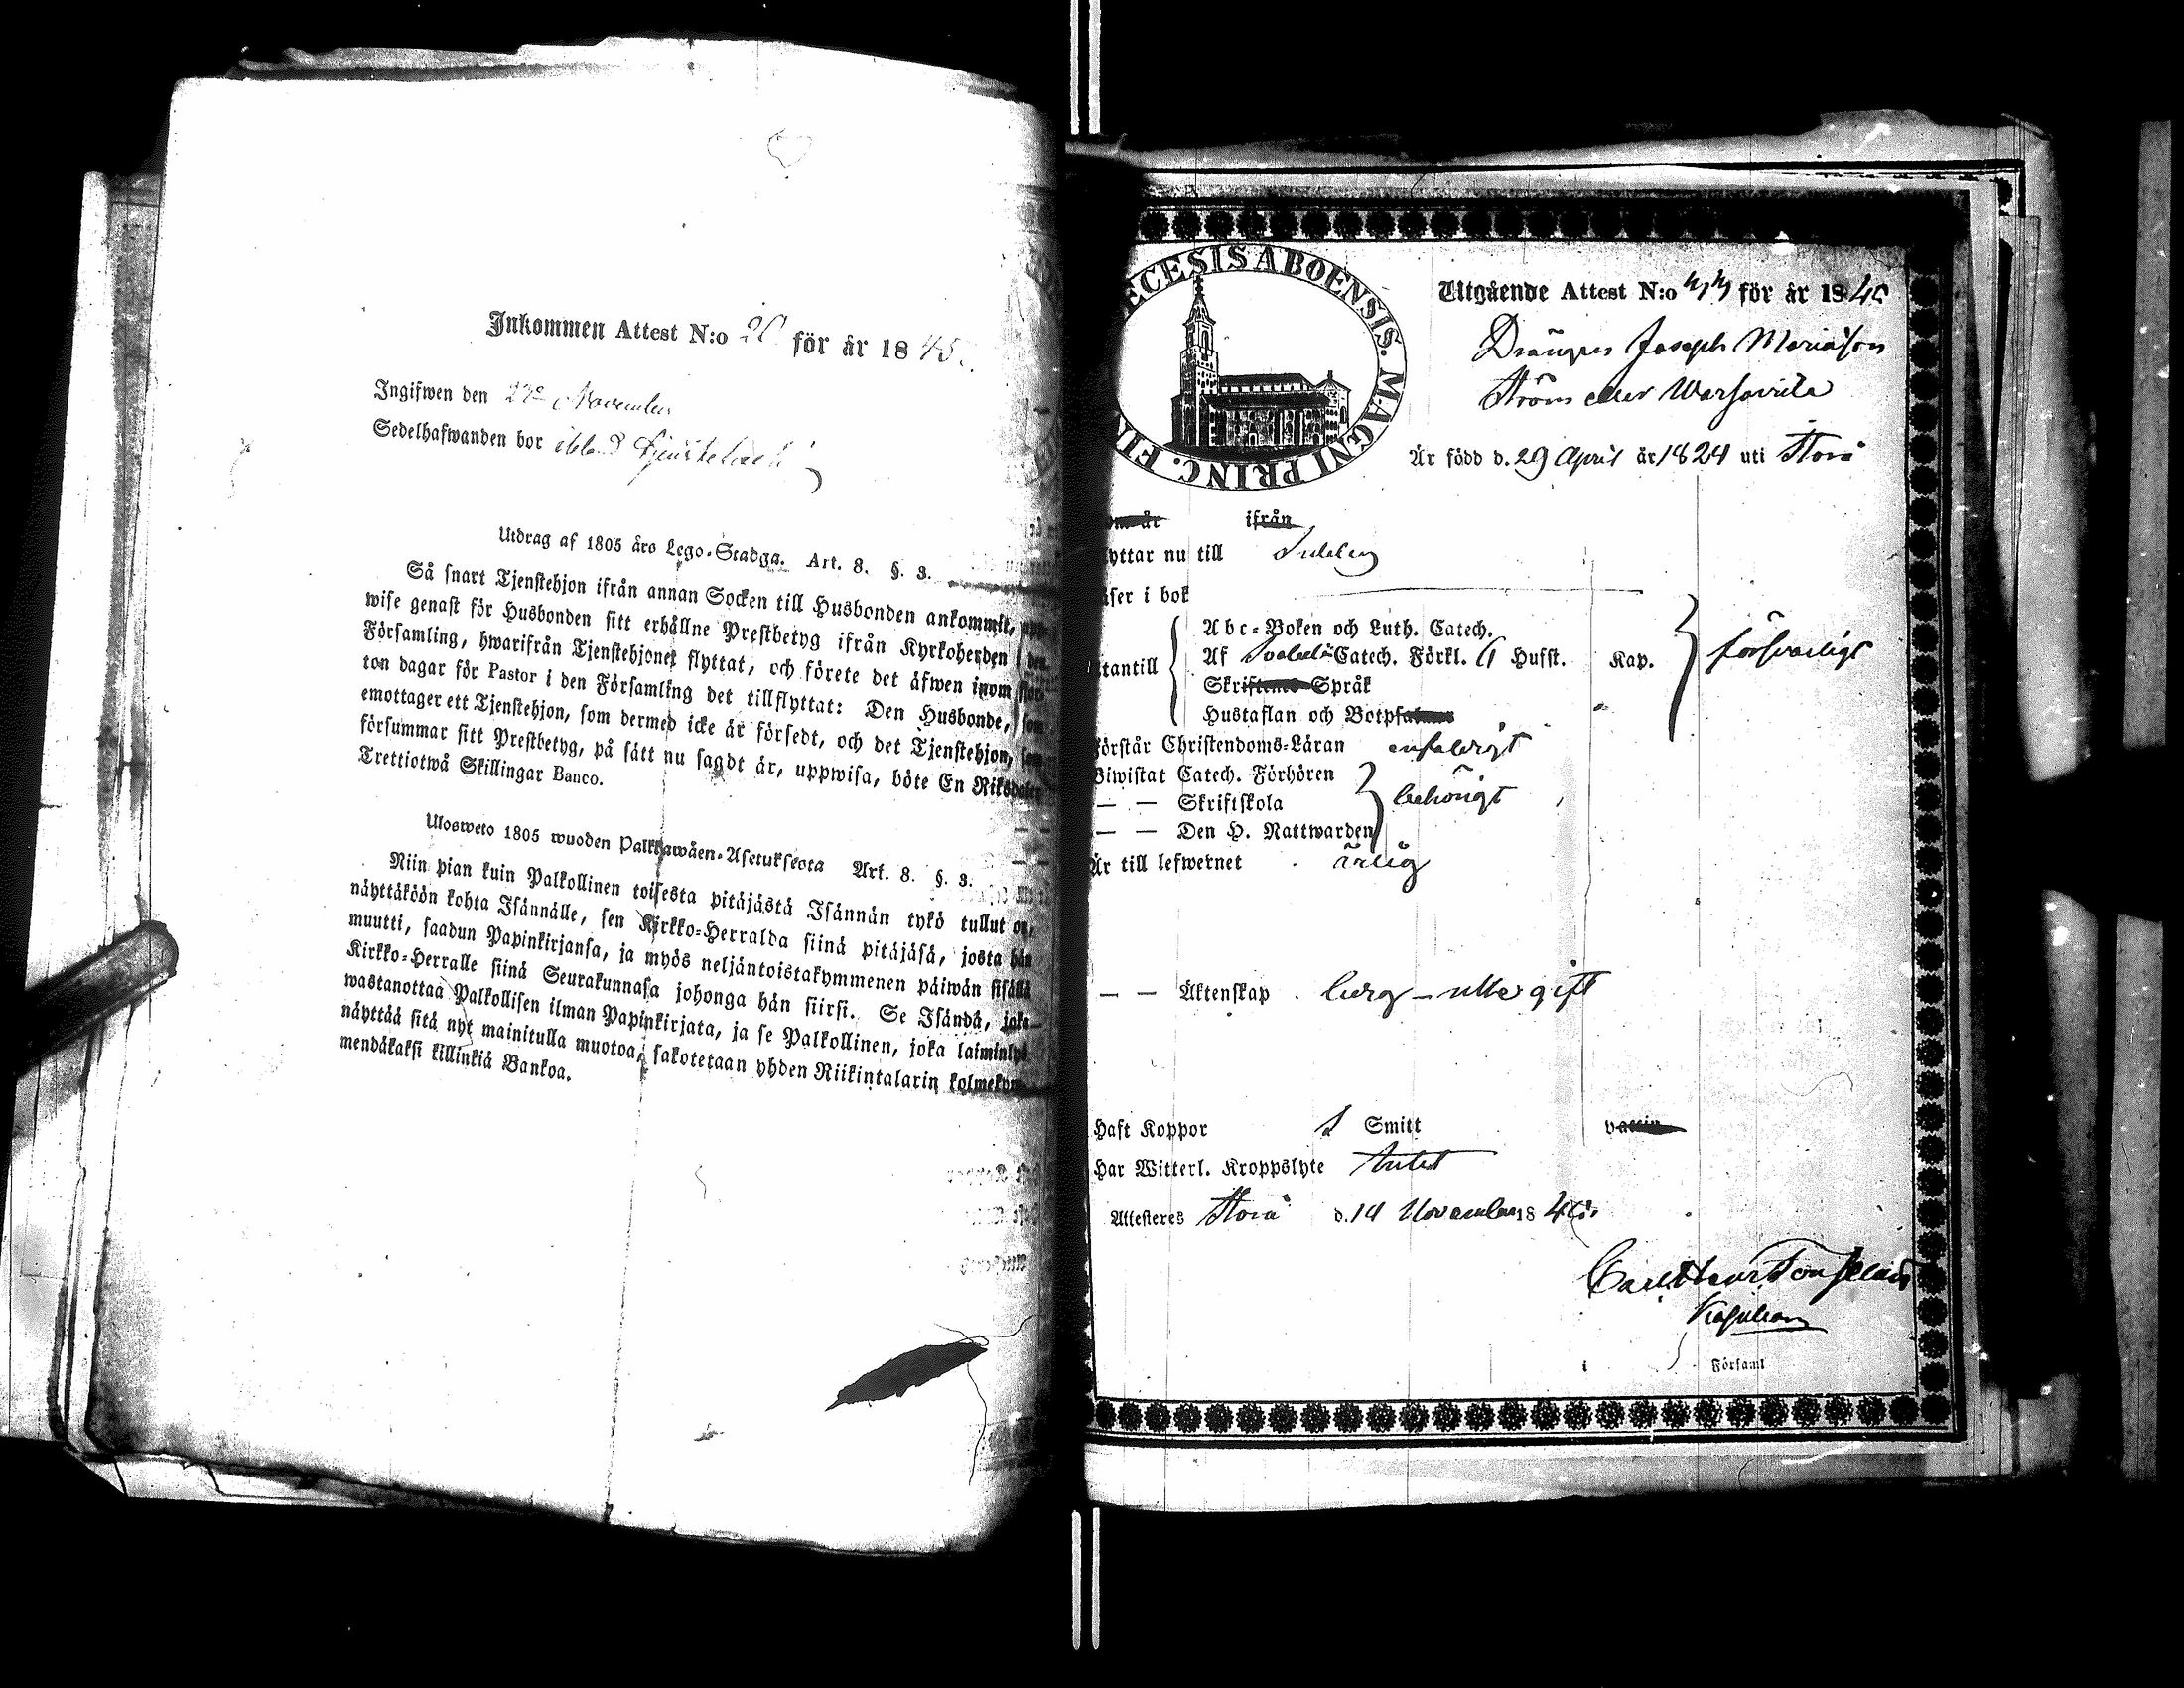 Inkommen Attest N:o 20 för år 1845.
Ingifwen den 22 November
Sedelhafwanden bor
Utdrag af 1805 års Lego-Stadga. Art. 8. §. 3.
Så snart Tjenstehjon ifrån annan Socken till Husbonden ankommit,
wise genast för Husbonden sitt erhållne Prestbetyg ifrån Kyrkoherden
Församling, hwarifrån Tjenstehjonet flyttat, och förete det äfwen inom
ton dagar för Pastor i den Församling det tillflyttat: Den Husbonde, som
emottager ett Tjenstehjon, som dermed icke är försedt, och det Tjenstehjon,
försummar sitt Prestbetyg, på sätt nu sagdt är, uppwisa, böte En Riksdaler
Trettiotwå Skillingar Banco.
Ulosweto 1805 wuoden Palkkawäen-Asetuksesta Art. 8. §. 3.
Niin pian kuin Palkollinen toisesta pitäjästä Isännän tykö tullut on,
näyttäköön kohta Isännälle, sen Kirkko-Herralda siinä pitäjäsä, josta hän
muutti, saadun Papinkirjansa, ja myös neljäntoistakymmenen päiwän sisällä
Kirkko-Herralle siinä Seurakunnasa johonga hän siirsi. Se Isändä, joka
wastanottaa Palkollisen ilman Papinkirjata, ja se Palkollinen, joka laiminlyö
näyttää sitä nyt mainitulla muotoa, sakotetaan yhden Riikintalarin kolmekym-
mendäkaksi killinkiä Bankoa.
ECESIS ABOENSIS. MAGNI PRINC. FI
Utgående Attest N:o för år 1845
Drängen Joseph Mariäson
Ström eller Warsavita
Är född d. 29 April år 1824 uti Storå
ifrån
yttar nu till
äser i bok
Abc-Boken och Luth. Catech.
Af Svebelii Catech. Förkl. Husst. Kap.
tantill
försvarligt
Skriftenes Språk
Hustaflan och Botpsalmer
Förstår Christendoms-Läran enfaldigt
Biwistat Catech. Förhören
— — Skriftskola behörigt
— — Den H. Nattwarden
Är till lefwernet ärlig
— — Äktenskap ledig – utter gift
Haft Koppor Smitt vaccin
Har Witterl. Kroppslyte Intet
Attesteres Storå d. 14 November 1845.
Kapellan
i Församl